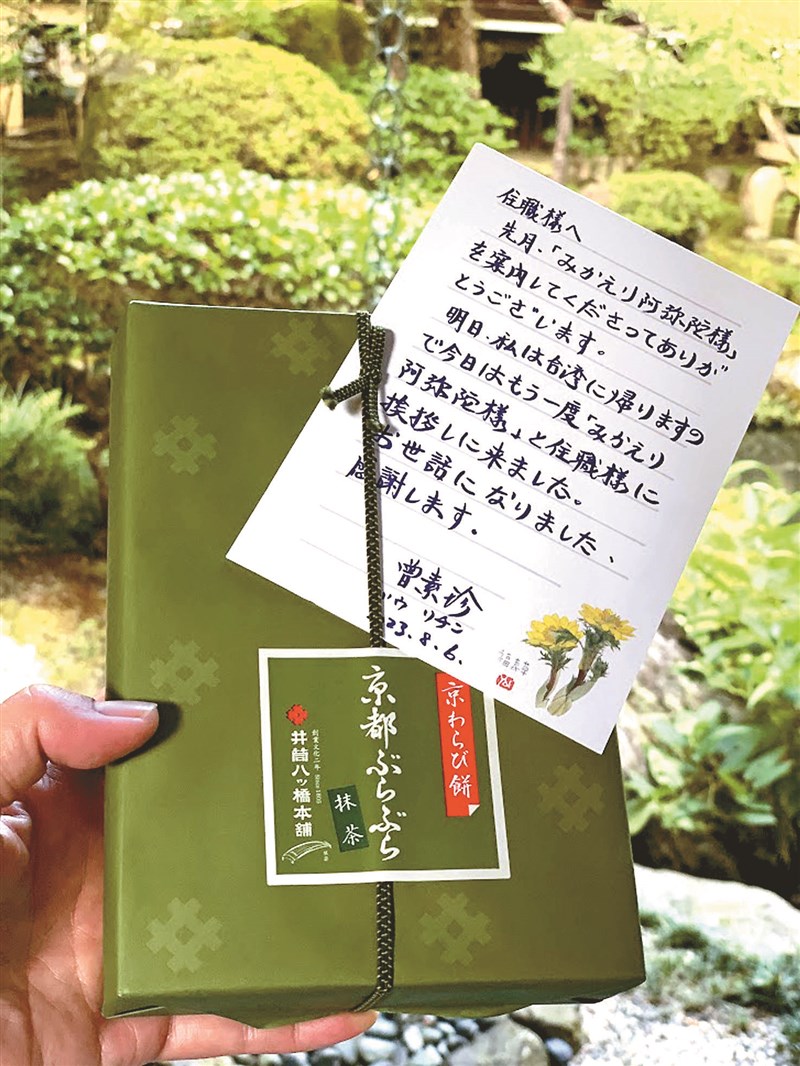 住職様へ
先月、「みかえり阿弥陀様」
を案内してくださってありが
とうございます。
明日、私は台湾に帰りますの
で今日はもう一度「みかえり
阿弥陀様」と住職様に
挨拶しに来ました。
お世話になりました、
感謝します。
曽素珍
ソウ リチン
23.8.6.
福寿草
京わらび餅
京都ぶらぶら
抹茶
創業文化二年 Since 1805
井筒八ッ橋本舗